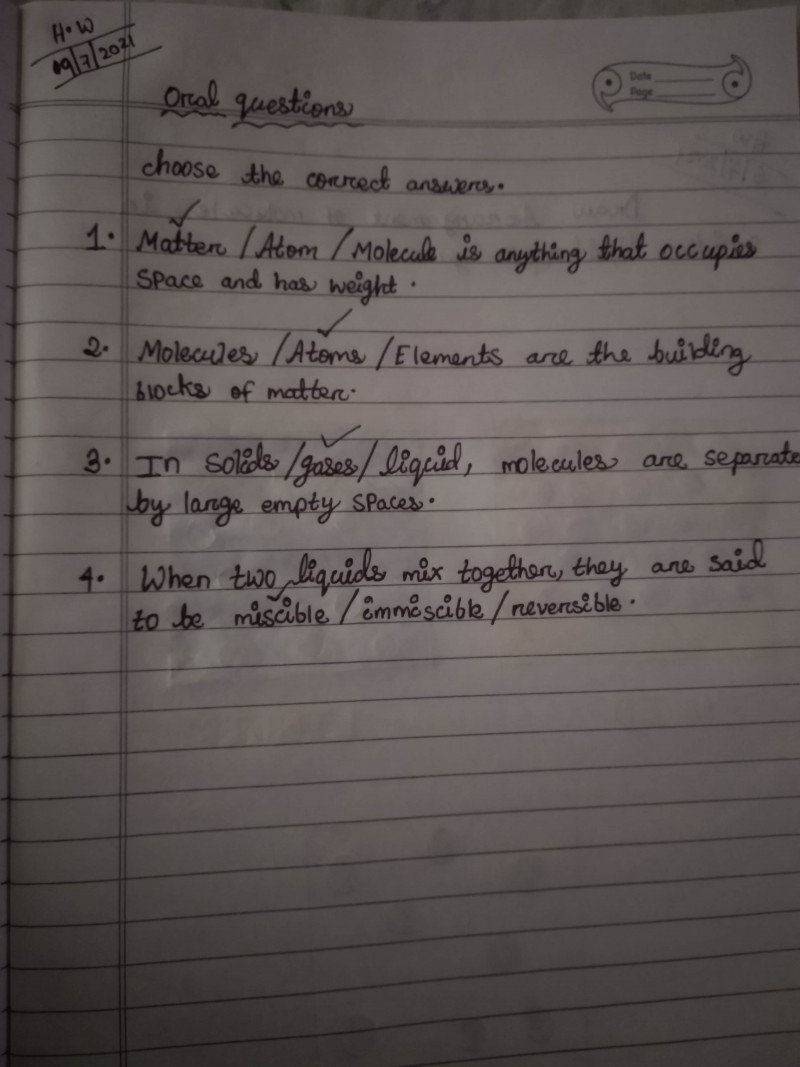 H.W
09/7/2021
Date
Page
Oral questions
choose the correct answers.
1. Matter / Atom / Molecule is anything that occupies
space and has weight.
2. Molecules / Atoms / Elements are the building
blocks of matter.
3. In solids / gases / liquid, molecules are separate
by large empty spaces.
4. When two liquids mix together, they are said
to be miscible / immiscible / reversible.